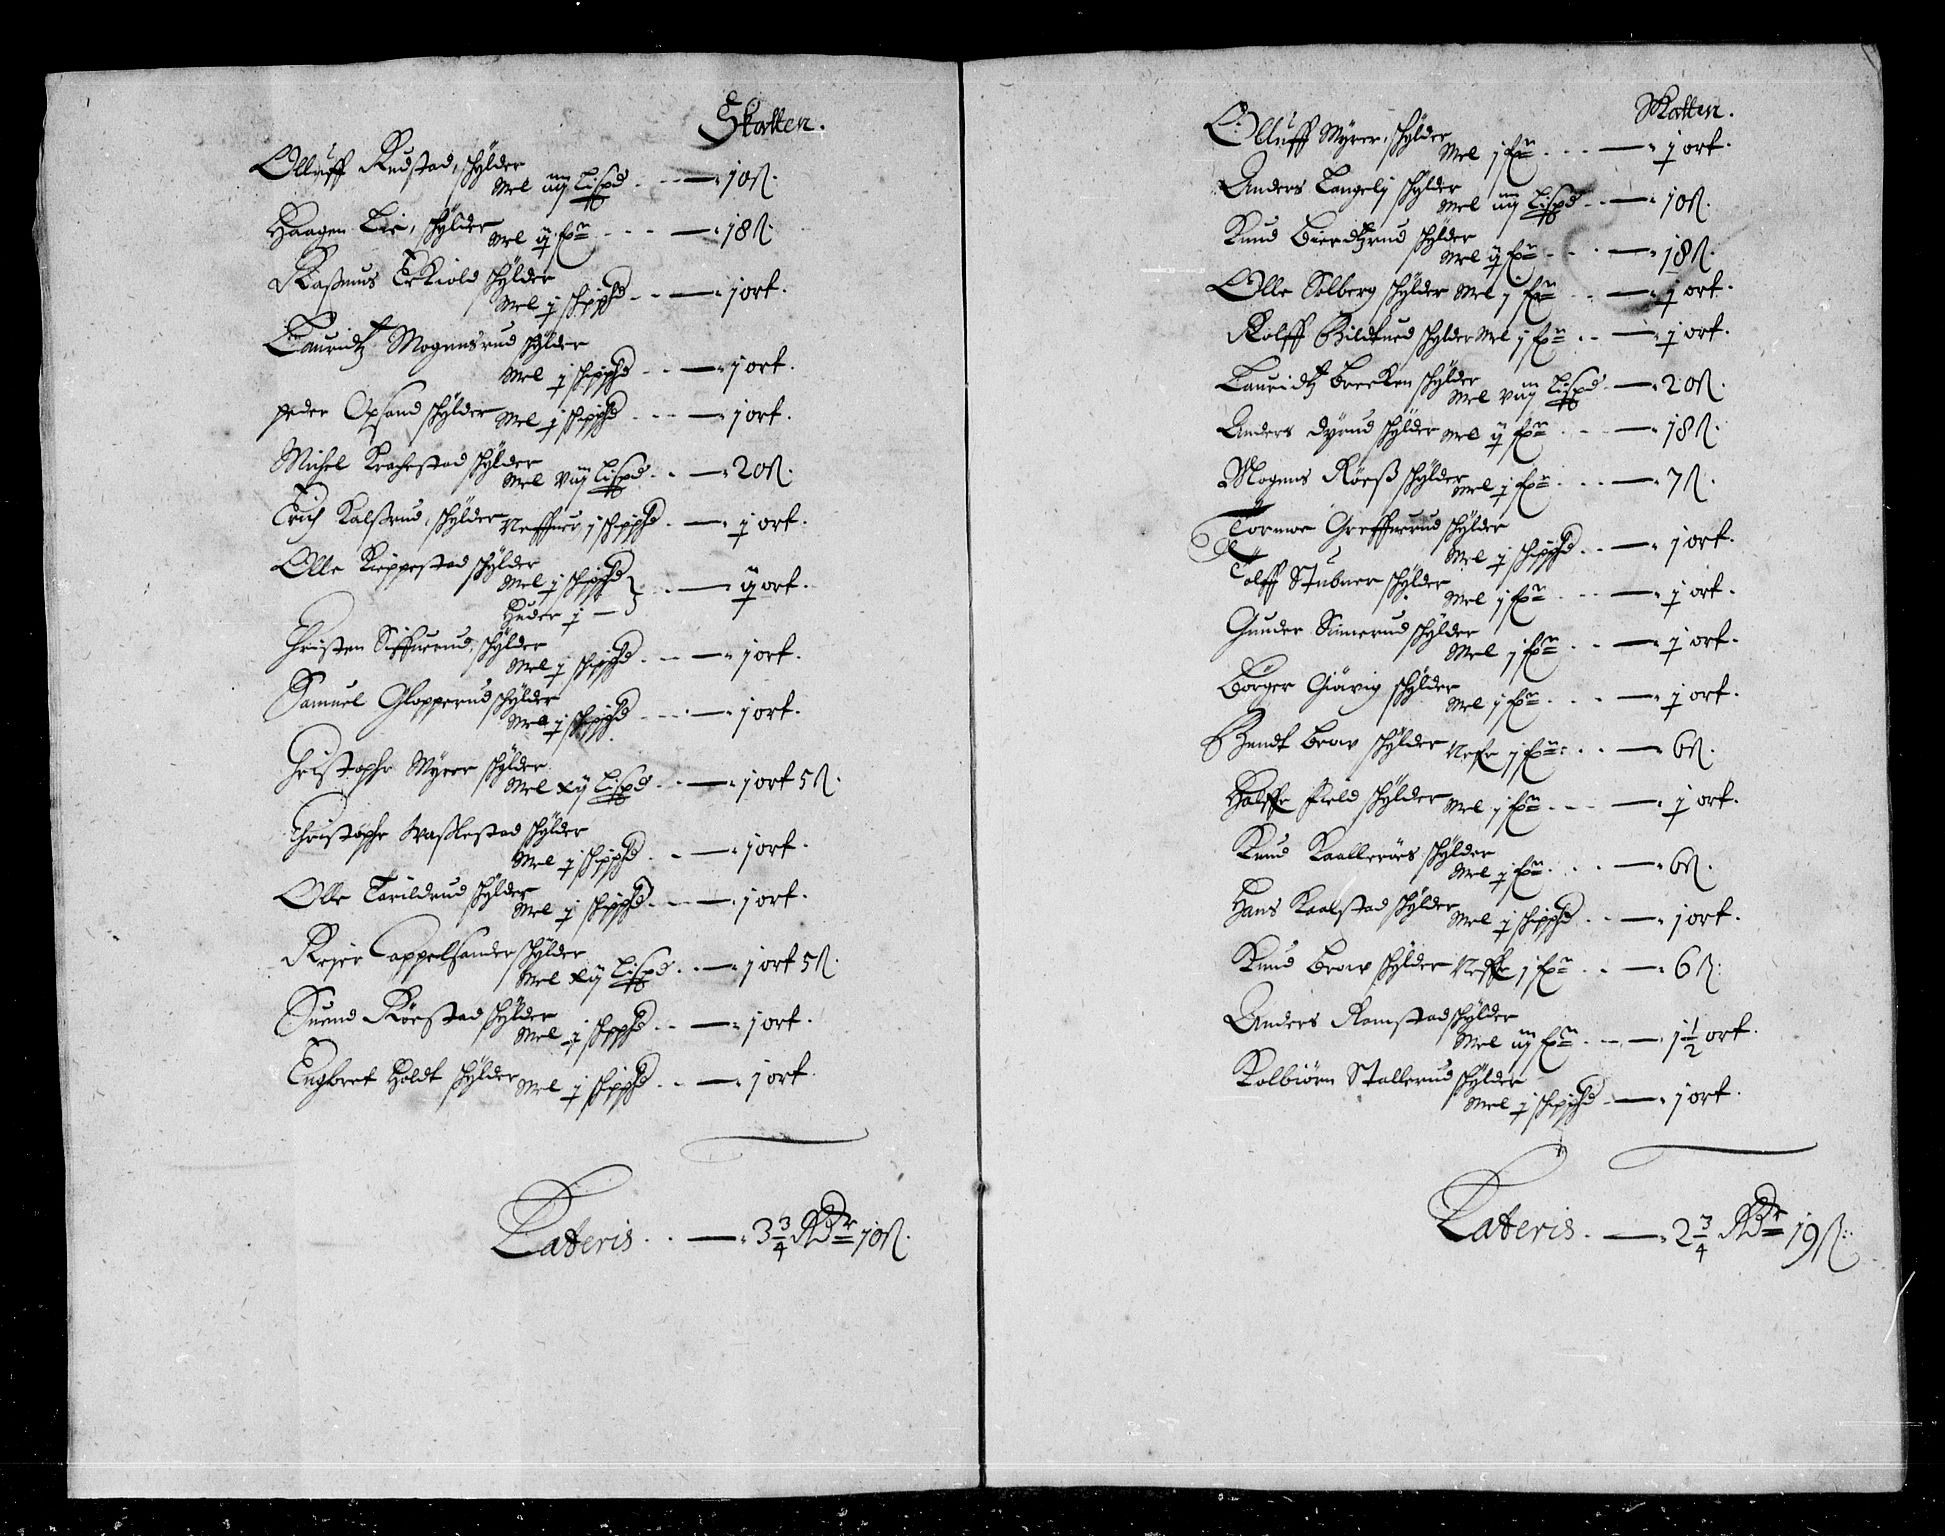 Skatten.
Olluff Rudstad, schÿlder
Mel iiij Lispd - - — 10 ß.
Haagen Lie, schÿlder
Mel ij fr - - - — 18 ß.
Rasmus schÿlder
Mel j schippd - - — 1 ort.
Lauridtz Mogensrud schÿlder
Mel j schippd - - — 1 ort.
Peder Opsand schÿlder Mel j schippd - - — 1 ort.
Michel Krachestad schÿlder
Mel viij Lispd - - — 20 ß.
Erich Kalsrud, schÿlder j schippd - — j ort.
Olle Kieppestad schÿlder
Mel j schippd
Huder j — } - - — ij ort.
Christen Siffuerud, schÿlder
Mel j schippd - - — 1 ort.
Samuel Glopperud schÿlder
Mel j schippd - - — 1 ort.
Christopher Mÿrer schÿlder
Mel xij Lispd - - — 1 ort 5 ß.
Christopher schÿlder
Mel j schippd - - — 1 ort.
Olle Torildrud schÿlder
Mel j schippd - - — 1 ort.
Rejer Cappelsander schÿlder
Mel xij Lispd - - — 1 ort 5 ß.
Suend Röestad schÿlder
Mel j schippd - - — 1 ort.
Engbret Holdt schÿlder Mel j schippd - - — 1 ort.
Lateris - - — 3 3/4 Rdr 10 ß.
Skatten.
Olluff Mÿrer, schÿlder
Mel j fr - - - — j ort.
Anders Langelj schÿlder
Mel iiij Lispd - - — 10 ß.
Knud schÿlder
Mel ij fr - - — 18 ß.
Olle Solberg schÿlder Mel j fr - - — j ort.
Rolff schÿlder Mel j fr - - — j ort.
Lauridtz Brecken schÿlder
Mel viij Lispd - — 20 ß.
Anders Dÿrud schÿlder Mel ij fr - - — 18 ß.
Mogens Röeß schÿlder
Mel j fr - - — 7 ß.
Tormoe Greffuerud schÿlder
Mel j schippd - - — 1 ort.
Tolff Stubner schÿlder
Mel j fr - - - — j ort.
Gunder Simerud schÿlder
Mel j fr - - — j ort.
Börger Giövig schÿlder
Mel j fr - - - — j ort.
Bendt schÿlder j fr - - — 6 ß.
Field schÿlder Mel j fr - - - — j ort.
Knud Kaalleröes schÿlder
Mel j fr - - - — 6 ß.
Hans Kaalstad schÿlder
Mel j schippd - - — 1 ort.
Knud schÿlder j fr - - — 6 ß.
Anders Ramstad schÿlder
Mel iij fr - - — 1 1/2 ort.
Kolbiörn Stallerud schÿlder
Mel j schippd - — 1 ort.
Lateris - — 2 3/4 Rdr 19 ß.